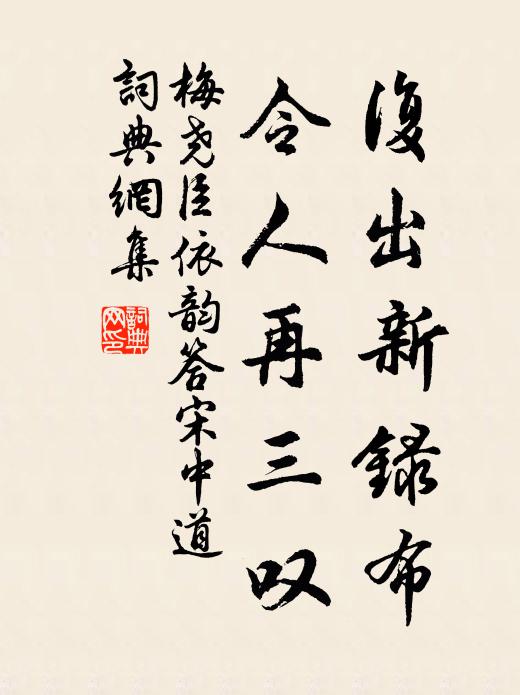 復出新錄布
令人再三叹
梅尧臣依韵答宋中道
詞典網集
詞典网印